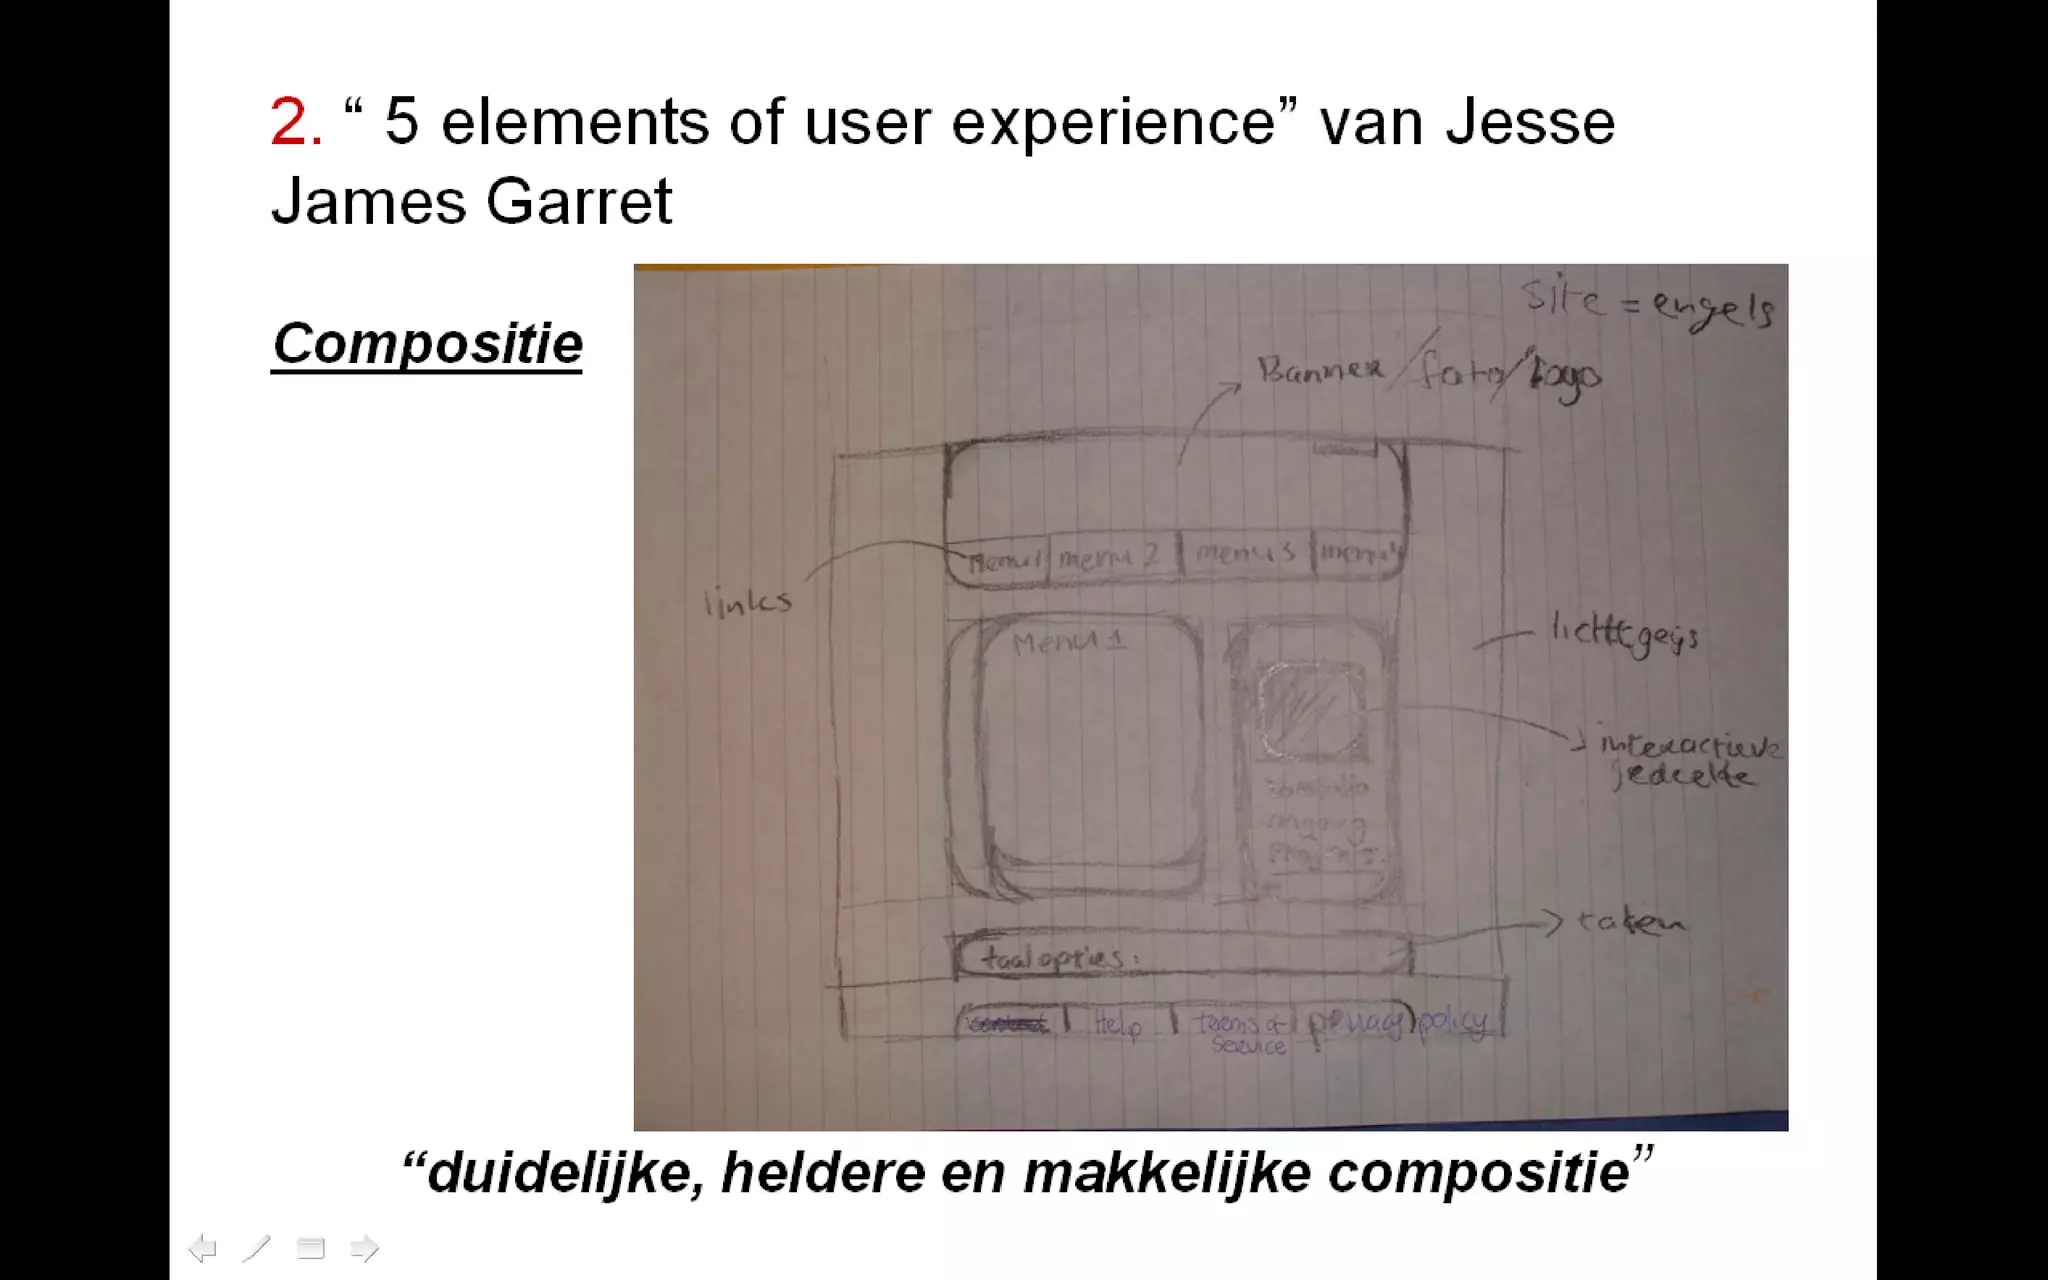 2. “ 5 elements of user experience” van Jesse
James Garret
Compositie
site = engels
Banner / foto / logo
menu1 menu 2 menu 3 menu 4
links
Menu 1
lichtgeijs
interactieve
gedeelte
taken
taal opties:
contact Help terms of privacy policy
service
“duidelijke, heldere en makkelijke compositie”